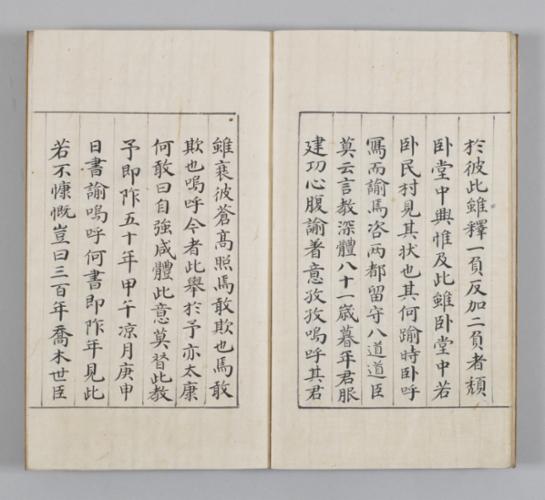 於彼此雖釋一負反加二負者頹
卧堂中興惟及此雖卧堂中若
卧民村見其状也其何踰時卧呼
寫而諭焉咨两都留守八道道臣
莫云言教深體八十一歲暮年君服
建功心腹諭著意孜孜嗚呼其君
雖衰彼蒼高照焉敢欺也焉敢
欺也嗚呼今者此舉於予亦太康
何敢曰自強咸體此意莫替此教
予即阼五十年甲午凉月庚申
日書諭嗚呼何書即阼年見此
若不慷慨豈曰三百年喬木世臣